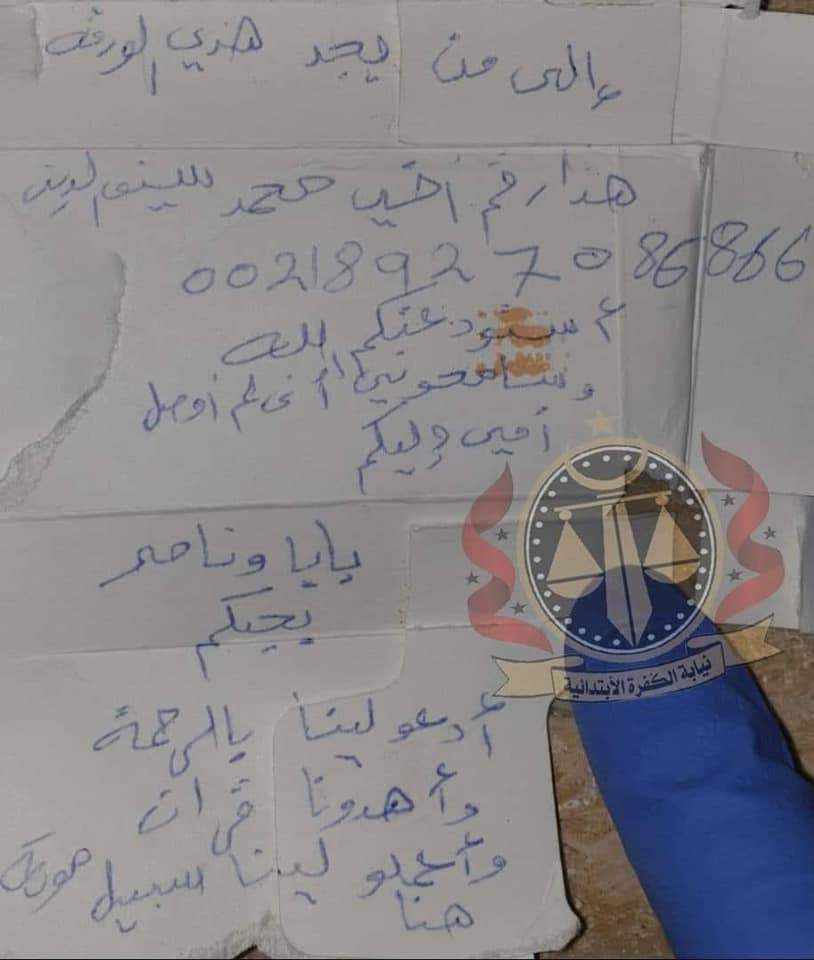 وإلى من يجد هذي الورقه
هذا رقم أخي محمد سيف الدين
00218927086866
أستودعتكم الله
وسامحوني أنى لم أوصل
أمي وليكم
بابا وناصر
يحبكم
أدعو لينا بالرحمة
وأهدونا قرآن
وأعملو لينا سبيل
هنا
نيابة الكفرة الأبتدائية